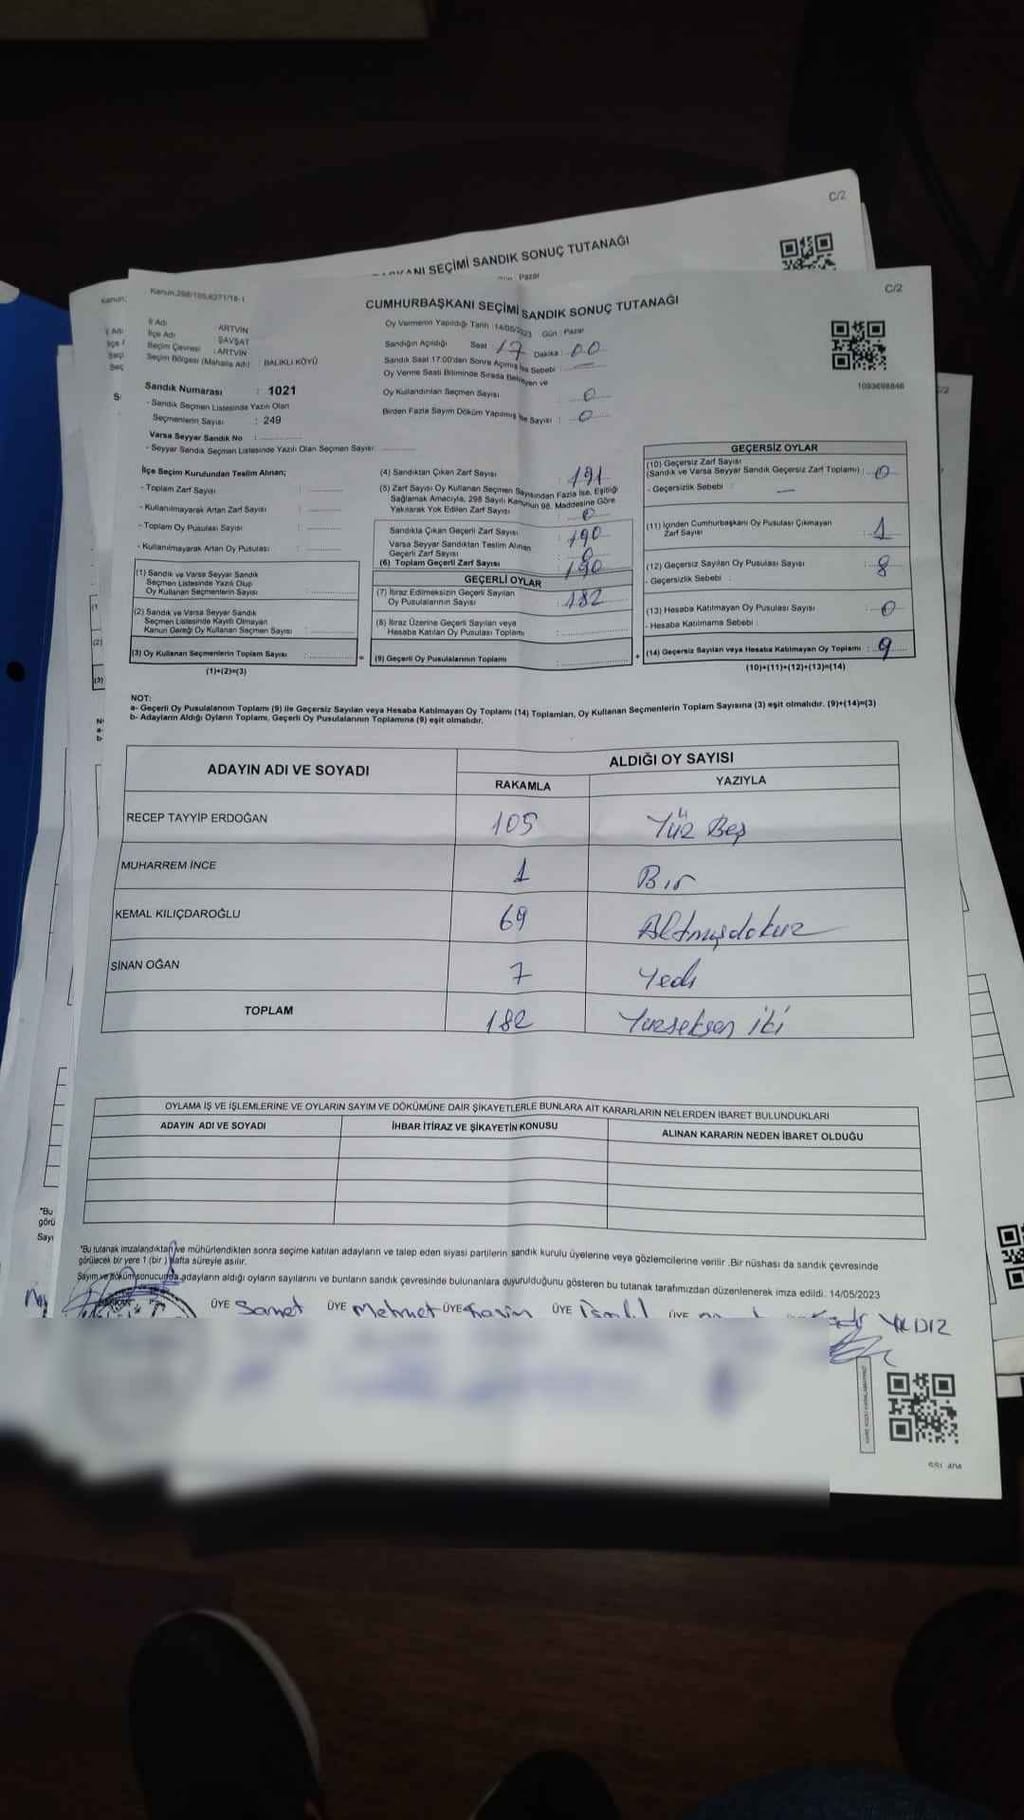 C/2
KANI SEÇİMİ SANDIK SONUÇ TUTANAĞI
Pazar
Kanun:
Kanun.298/105,6271/18-1
C/2
CUMHURBAŞKANI SEÇİMİ SANDIK SONUÇ TUTANAĞI
Oy Vermenin Yapıldığı Tarih :14/05/2023 Gün : Pazar
İl Adı : ARTVİN
İlçe Adı : ŞAVŞAT
Seçim Çevresi : ARTVİN
Seçim Bölgesi (Mahalle Adı) : BALIKLI KÖYÜ
Sandık Numarası : 1021
- Sandık Seçmen Listesinde Yazılı Olan
Seçmenlerin Sayısı : 249
Varsa Seyyar Sandık No :
- Seyyar Sandık Seçmen Listesinde Yazılı Olan Seçmen Sayısı :
Sandığın Açıldığı Saat : 17 Dakika : 00
Sandık Saat 17:00'den Sonra Açılmış İse Sebebi : —
Oy Verme Saati Bitiminde Sırada Bekleyen ve
Oy Kullandırılan Seçmen Sayısı : 0
Birden Fazla Sayım Döküm Yapılmış İse Sayısı : 0
İlçe Seçim Kurulundan Teslim Alınan;
- Toplam Zarf Sayısı :
- Kullanılmayarak Artan Zarf Sayısı :
- Toplam Oy Pusulası Sayısı :
- Kullanılmayarak Artan Oy Pusulası :
(1) Sandık ve Varsa Seyyar Sandık
Seçmen Listesinde Yazılı Olup
Oy Kullanan Seçmenlerin Sayısı :
(2) Sandık ve Varsa Seyyar Sandık
Seçmen Listesinde Kayıtlı Olmayan
Kanun Gereği Oy Kullanan Seçmen Sayısı :
(3) Oy Kullanan Seçmenlerin Toplam Sayısı :
(1)+(2)=(3)
(4) Sandıktan Çıkan Zarf Sayısı : 191
(5) Zarf Sayısı Oy Kullanan Seçmen Sayısından Fazla İse, Eşitliği
Sağlamak Amacıyla, 298 Sayılı Kanunun 98. Maddesine Göre
Yakılarak Yok Edilen Zarf Sayısı : 0
Sandıkta Çıkan Geçerli Zarf Sayısı : 190
Varsa Seyyar Sandıktan Teslim Alınan
Geçerli Zarf Sayısı : 0
(6) Toplam Geçerli Zarf Sayısı : 190
GEÇERLİ OYLAR
(7) İtiraz Edilmeksizin Geçerli Sayılan
Oy Pusulalarının Sayısı : 182
(8) İtiraz Üzerine Geçerli Sayılan veya
Hesaba Katılan Oy Pusulası Toplamı :
(9) Geçerli Oy Pusulalarının Toplamı :
GEÇERSİZ OYLAR
(10) Geçersiz Zarf Sayısı
(Sandık ve Varsa Seyyar Sandık Geçersiz Zarf Toplamı) : 0
- Geçersizlik Sebebi : —
(11) İçinden Cumhurbaşkanı Oy Pusulası Çıkmayan
Zarf Sayısı : 1
(12) Geçersiz Sayılan Oy Pusulası Sayısı : 8
- Geçersizlik Sebebi :
(13) Hesaba Katılmayan Oy Pusulası Sayısı : 0
- Hesaba Katılmama Sebebi :
(14) Geçersiz Sayılan veya Hesaba Katılmayan Oy Toplamı : 9
(10)+(11)+(12)+(13)=(14)
NOT:
a- Geçerli Oy Pusulalarının Toplamı (9) ile Geçersiz Sayılan veya Hesaba Katılmayan Oy Toplamı (14) Toplamları, Oy Kullanan Seçmenlerin Toplam Sayısına (3) eşit olmalıdır. (9)+(14)=(3)
b- Adayların Aldığı Oyların Toplamı, Geçerli Oy Pusulalarının Toplamına (9) eşit olmalıdır.
ADAYIN ADI VE SOYADI
ALDIĞI OY SAYISI
RAKAMLA YAZIYLA
RECEP TAYYİP ERDOĞAN 105 Yüz Beş
MUHARREM İNCE 1 Bir
KEMAL KILIÇDAROĞLU 69 Altmışdokuz
SİNAN OĞAN 7 Yedi
TOPLAM 182 Yüzseksen iki
OYLAMA İŞ VE İŞLEMLERİNE VE OYLARIN SAYIM VE DÖKÜMÜNE DAİR ŞİKAYETLERLE BUNLARA AİT KARARLARIN NELERDEN İBARET BULUNDUKLARI
ADAYIN ADI VE SOYADI İHBAR İTİRAZ VE ŞİKAYETİN KONUSU ALINAN KARARIN NEDEN İBARET OLDUĞU
"Bu tutanak imzalandıktan ve mühürlendikten sonra seçime katılan adayların ve talep eden siyasi partilerin sandık kurulu üyelerine veya gözlemcilerine verilir .Bir nüshası da sandık çevresinde
görülecek bir yere 1 (bir ) hafta süreyle asılır.
Sayım ve döküm sonucunda adayların aldığı oyların sayılarını ve bunların sandık çevresinde bulunanlara duyurulduğunu gösteren bu tutanak tarafımızdan düzenlenerek imza edildi. 14/05/2023
ÜYE Samet ÜYE Mehmet ÜYE ÜYE İsmail ÜYE YILDIZ